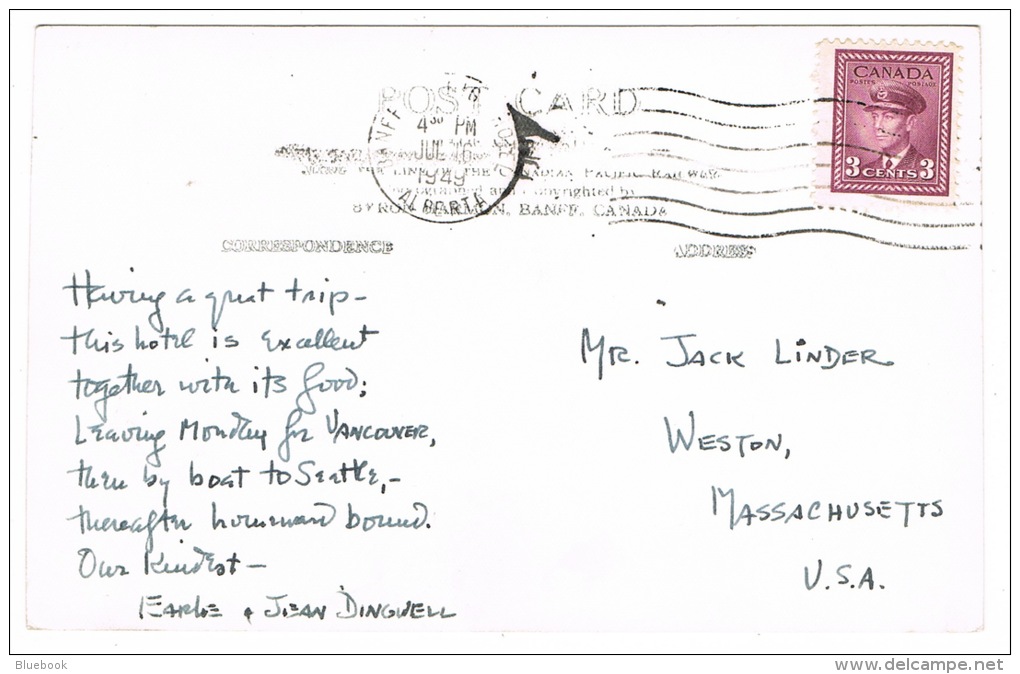 POST CARD
BANFF
4³⁰ PM
JUL 16
1949
ALBERTA
CANADA
POSTES POSTAGE
3 CENTS 3
ALONG THE LINE OF THE CANADIAN PACIFIC RAILWAY
and Copyrighted by
BYRON HARMON, BANFF, CANADA
CORRESPONDENCE
ADDRESS
Having a great trip –
this hotel is Excellent
together with its food;
Leaving Monday for VANCOUVER,
then by boat to Seattle, –
thereafter homeward bound.
Our Kindest –
EARLE & JEAN DINGWELL
MR. JACK LINDER
WESTON,
MASSACHUSETTS
U.S.A.
Bluebook
www.delcampe.net